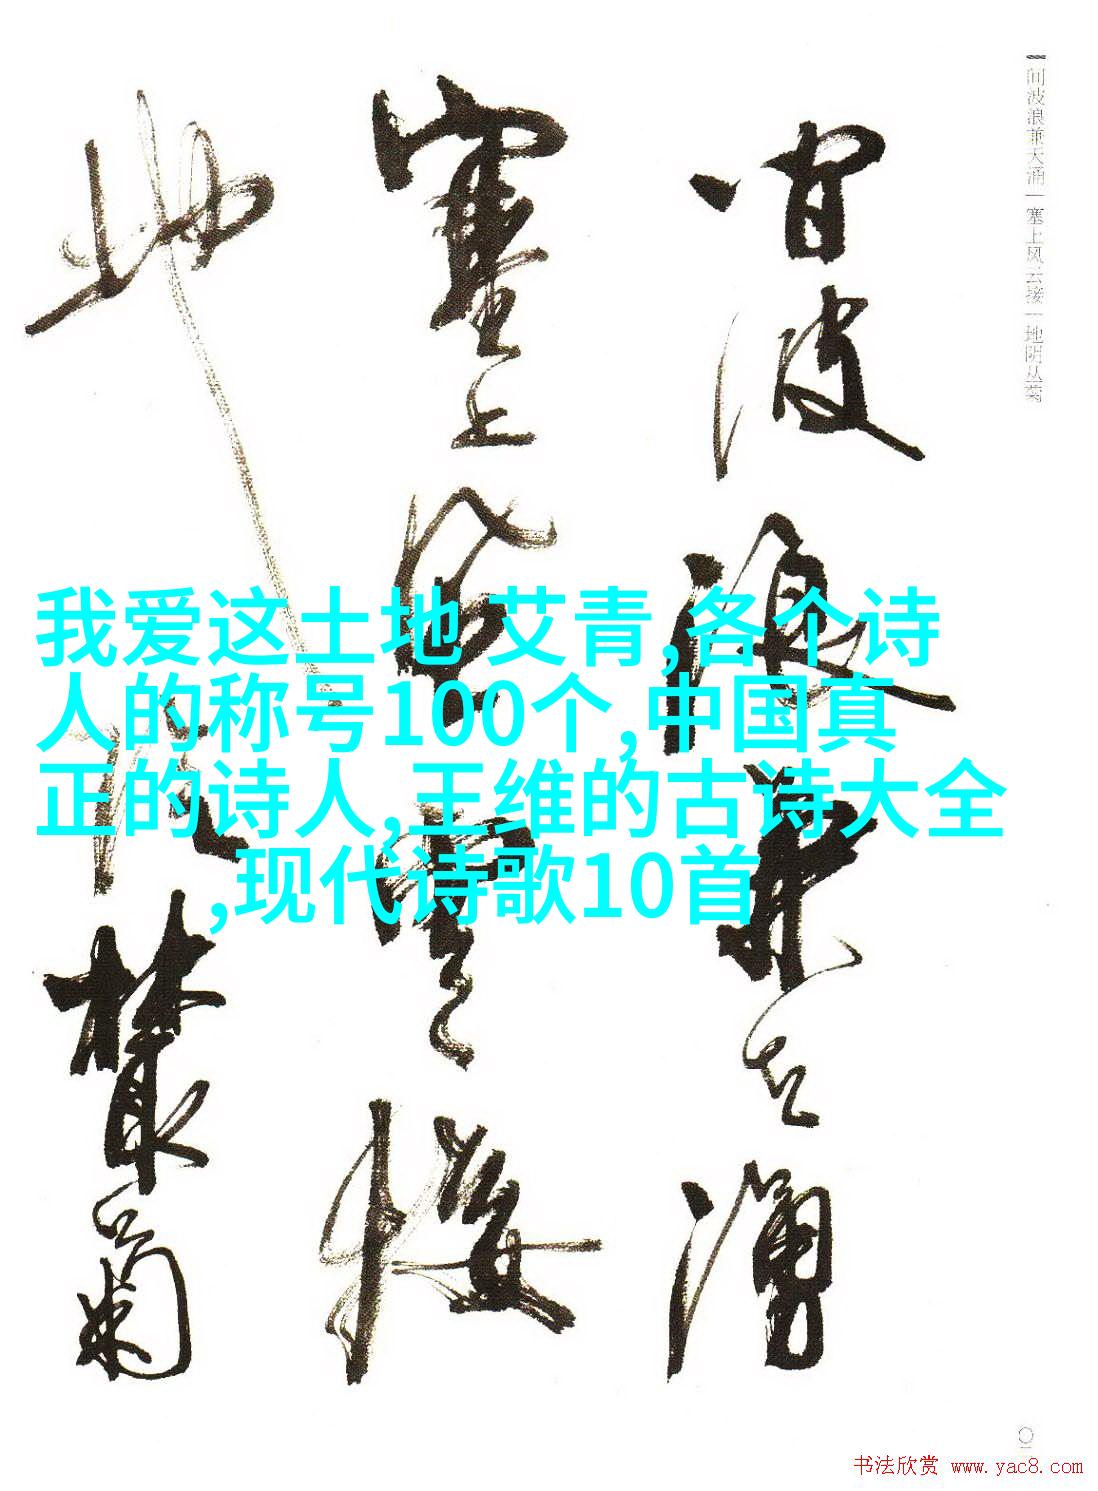 间波浪兼天涌｜塞上风云接｜地阴丛菊
间波浪兼天涌
塞上风云接
地阴丛菊
我爱这土地 艾青,各个诗
人的称号100个,中国真
正的诗人,王维的古诗大全
,现代诗歌10首
书法欣赏 www.yac8.com